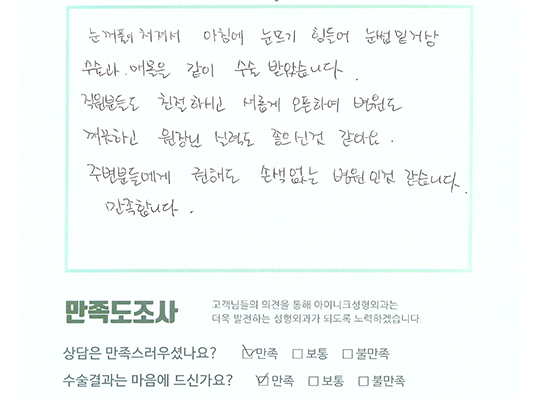 눈꺼풀이 쳐져서 아침에 눈뜨기 힘들어 눈썹밑거상
수술과 애목은 같이 수술 받았습니다.
직원분들도 친절하시고 새롭게 오픈하여 병원도
깨끗하고 원장님 실력도 좋으신것 같아요.
주변분들에게 권해도 손색없는 병원인것 같습니다.
만족합니다.
만족도조사
고객님들의 의견을 통해 아이니크성형외과는
더욱 발전하는 성형외과가 되도록 노력하겠습니다.
상담은 만족스러우셨나요? ☑만족 ☐보통 ☐불만족
수술결과는 마음에 드신가요? ☑만족 ☐보통 ☐불만족